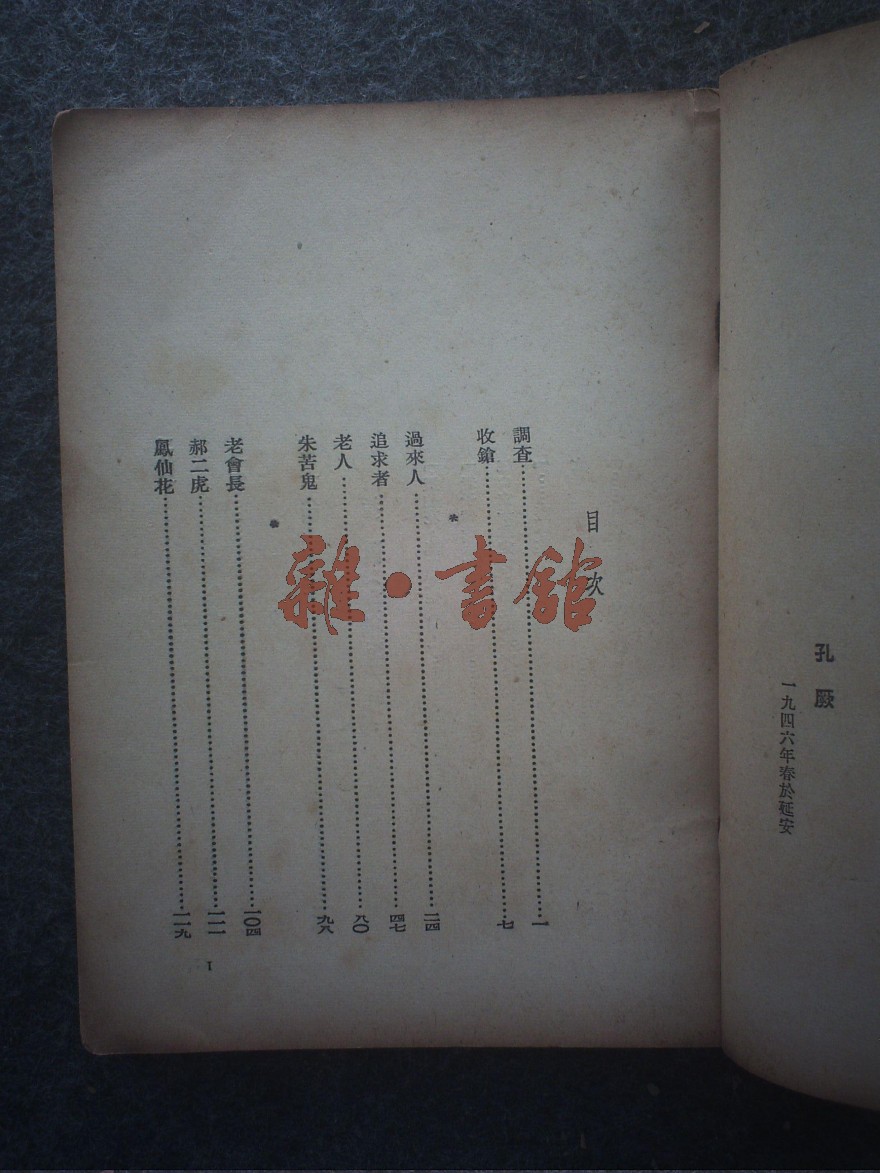 孔厥
一九四六年春於延安
目次
調查……一
收鎗……七
*
過來人……二四
追求者……四七
老人……八〇
朱苦鬼……九八
*
老會長……一〇四
郝二虎……一一一
鳳仙花……一一九
I
雜·書館